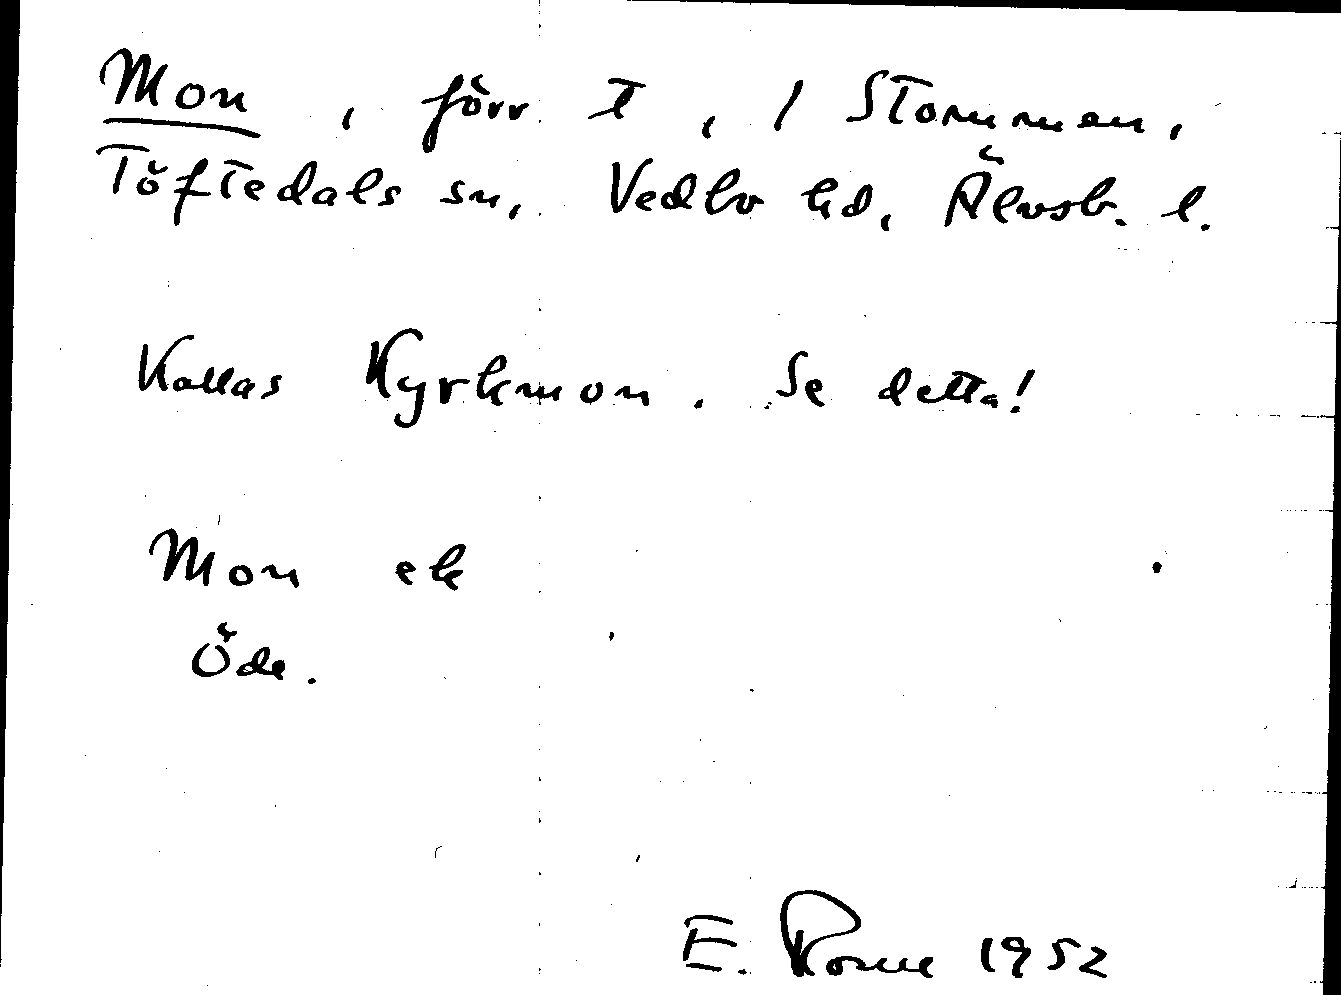 Mon, förr t, / Stommen,
Töftedals sn, Vedbo hd, Älvsb. l.
Kallas Kyrkmon. Se detta!
Mon ek
Öde.
E. 1952